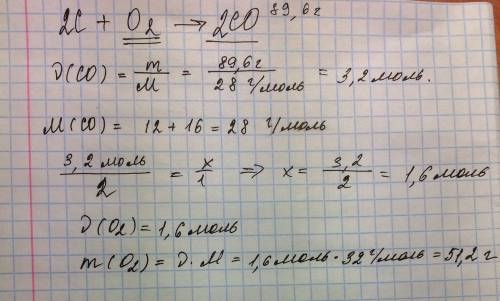 2C + O2 → 2CO 89,6г
ν(CO) = m/M = 89,6г / 28 г/моль = 3,2 моль.
M(CO) = 12 + 16 = 28 г/моль
3,2 моль / 2 = x/1 => x = 3,2/2 = 1,6 моль
ν(O2) = 1,6 моль
m(O2) = ν·M = 1,6 моль · 32 г/моль = 51,2 г